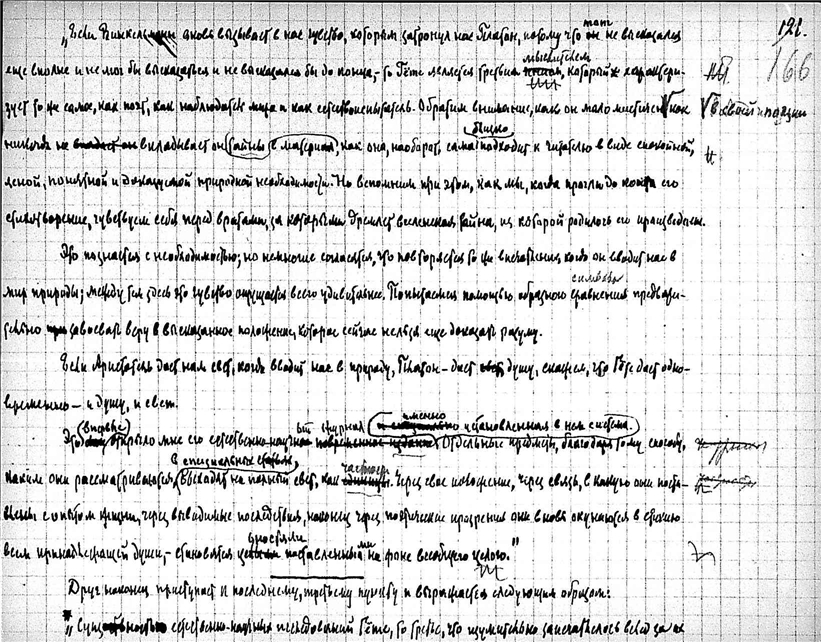 121.
166
„Если Винкельман вновь вызывает в нас чувство, которым затронул нас Платон, потому что тот не высказался
еще вполне и не мог бы высказаться и не высказался бы до конца, – то Гёте является третьим мыслителем, который характери-
зует то же самое, как поэт, как наблюдатель мира и как естествоиспытатель. Обратим внимание, как он мало мистичен как в своей поэзии
никогда не вкладывает он тайны в материал, как она, наоборот, сама близко подходит к читателю в виде спокойной,
ясной, понятной и доказуемой природной необходимости. Но вспомним при этом, как мы, когда прочли до конца его
стихотворение, чувствуем себя перед вратами, за которыми дремлет вселенская тайна, из которой родилось его произведение.
Это познается с необходимостью; но немногие согласятся, что повторяется то же впечатление когда он вводит нас в
мир природы; между тем здесь это чувство ощущается всего удивительнее. Попытаемся помощью образного сравнения предвари-
символа
тельно завоевать веру в высказанное положение, которое сейчас нельзя еще доказать разуму.
Если Аристотель дает нам свет, когда вводит нас в природу, Платон – дает душу, скажем, что Гёте дает одно-
временно – и душу, и свет.
Это впервые открыло мне его естественно-научная именно установленная в нем система. Отдельные предметы, благодаря тому способу,
каким они рассматриваются в специальных статьях, выходят на полный свет, как частности. Через свое положение, через связь, в какую они постав-
лены с опытом жизни, через выводимые последствия, наконец через поэтические прозрения они вновь окунаются в стихию
всем принадлежащей души, – становятся на фоне всеобщего целого."
Друг наконец приступает к последнему, третьему пункту и выражается следующим образом:
„ естественно-научных исследований Гёте, то третье, что изумительно запечатлелось вслед за их